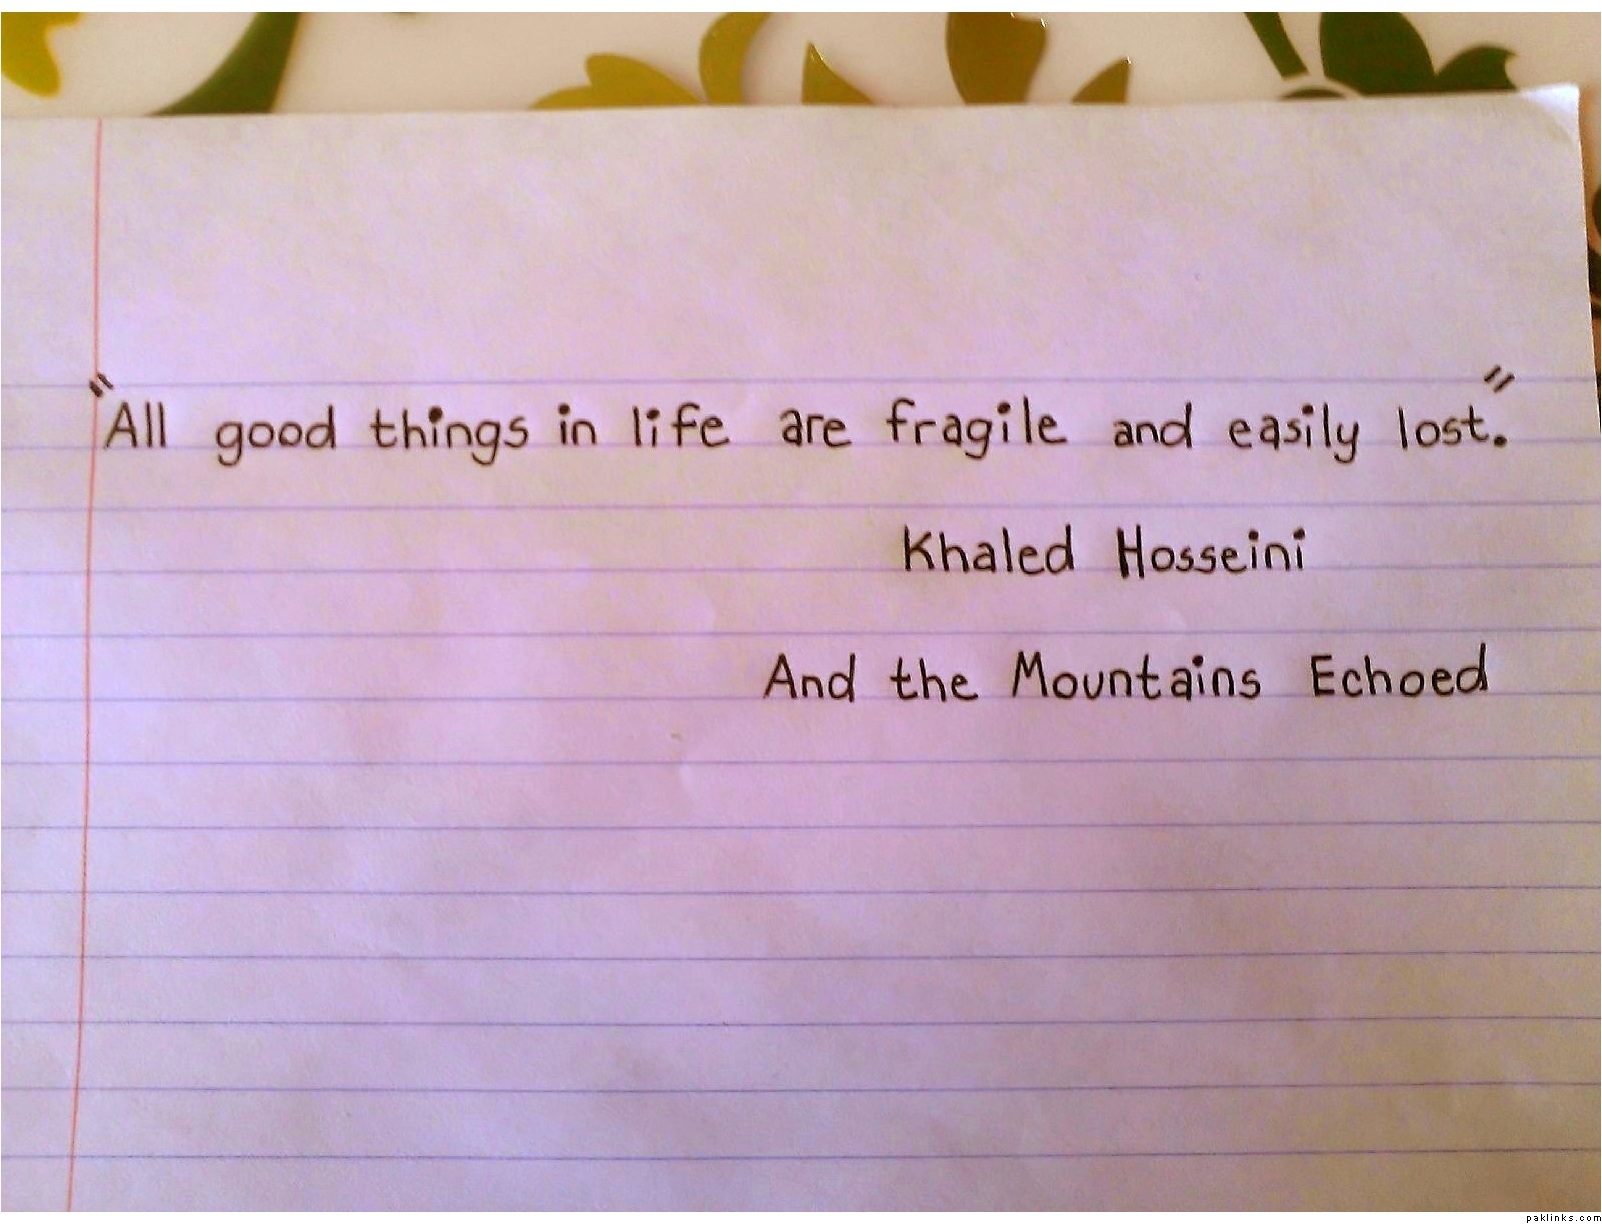 "All good things in life are fragile and easily lost."
Khaled Hosseini
And the Mountains Echoed
paklinks.com